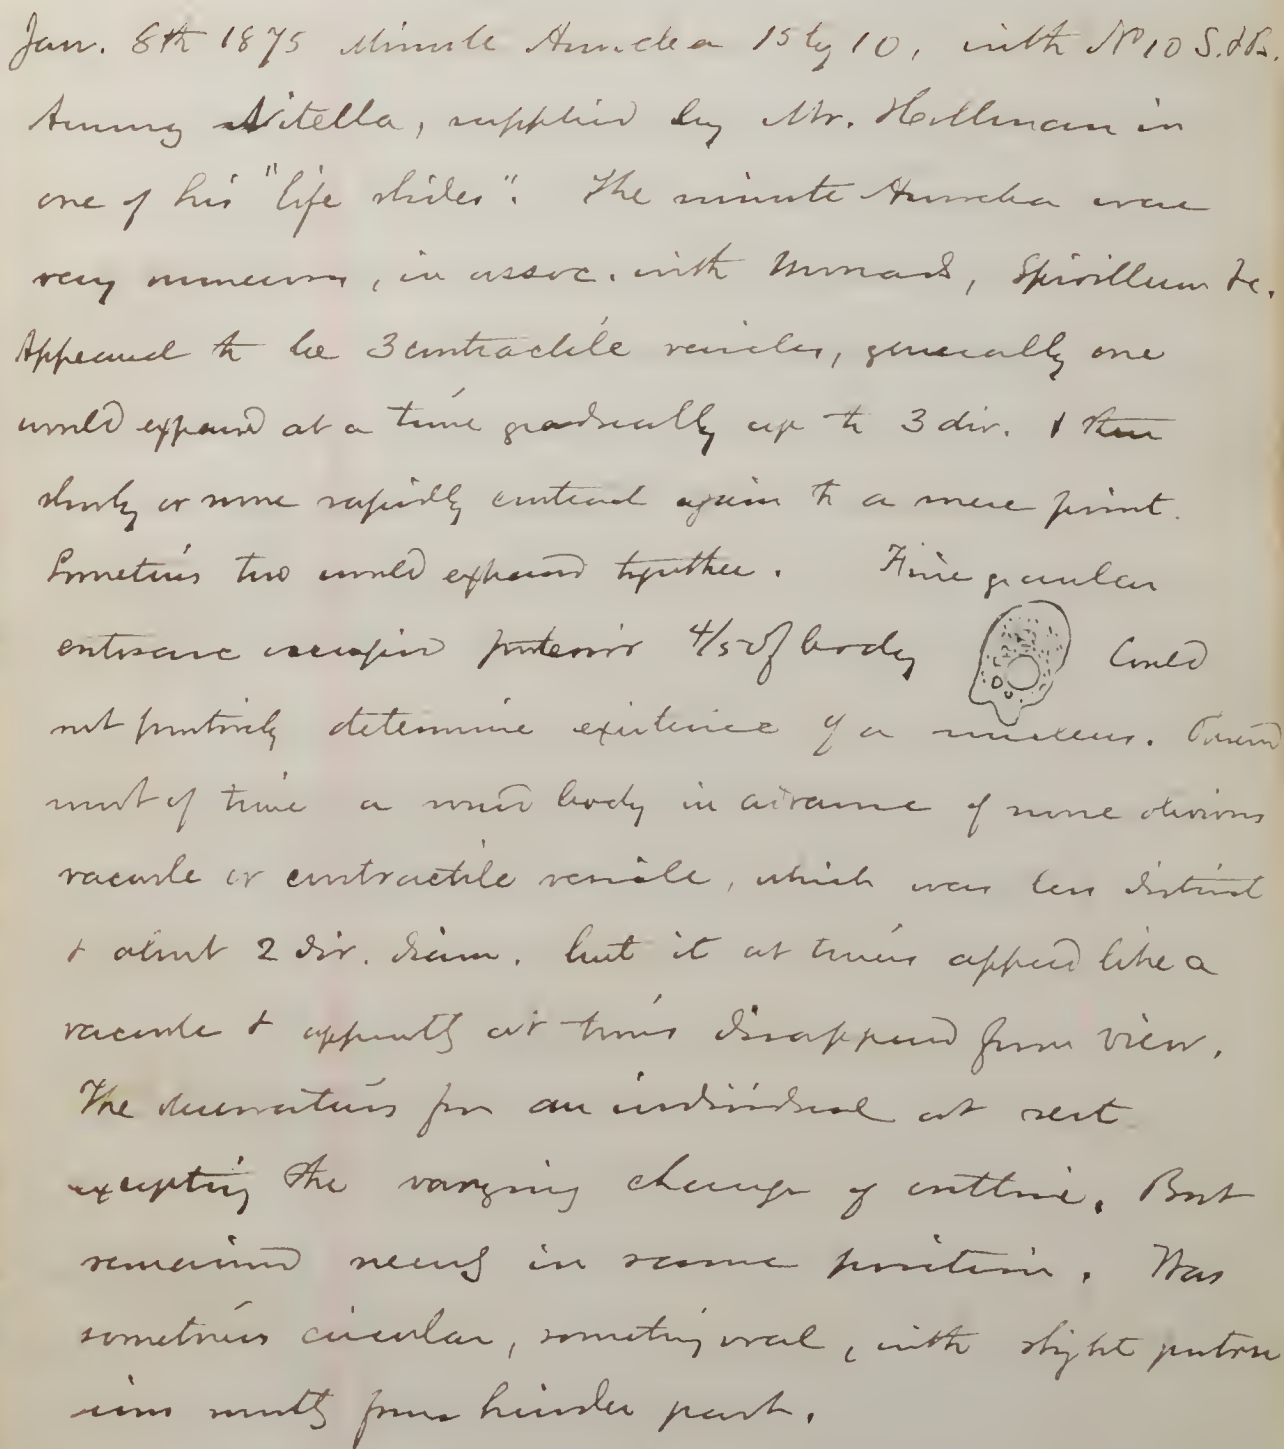 Jan. 8th 1875 Minute Amoeba 15 by 10, with No 10 S. & B.
Among Nitella, supplied by Mr. Hollman in
one of his "life slides". The minute Amoeba were
very numerous, in assoc. with Monads, Spirillum &c.
Appeared to be 3 contractile vesicles, generally one
would expand at a time gradually up to 3 div. & then
slowly or more rapidly contract again to a mere point.
Sometimes two would expand together. Fine granular
entosarc occupied posterior 4/5 of body Could
not positively determine existence of a nucleus.
most of time a round body in advance of more obvious
vacuole or contractile vesicle, which was less distinct
& about 2 div. diam. but it at times appeared like a
vacuole & apparently at times disappeared from view.
The observations for an individual at rest
excepting the varying change of outline. But
remained nearly in same position. Was
sometimes circular, sometimes oval, with slight protru
sions mostly from hinder part.